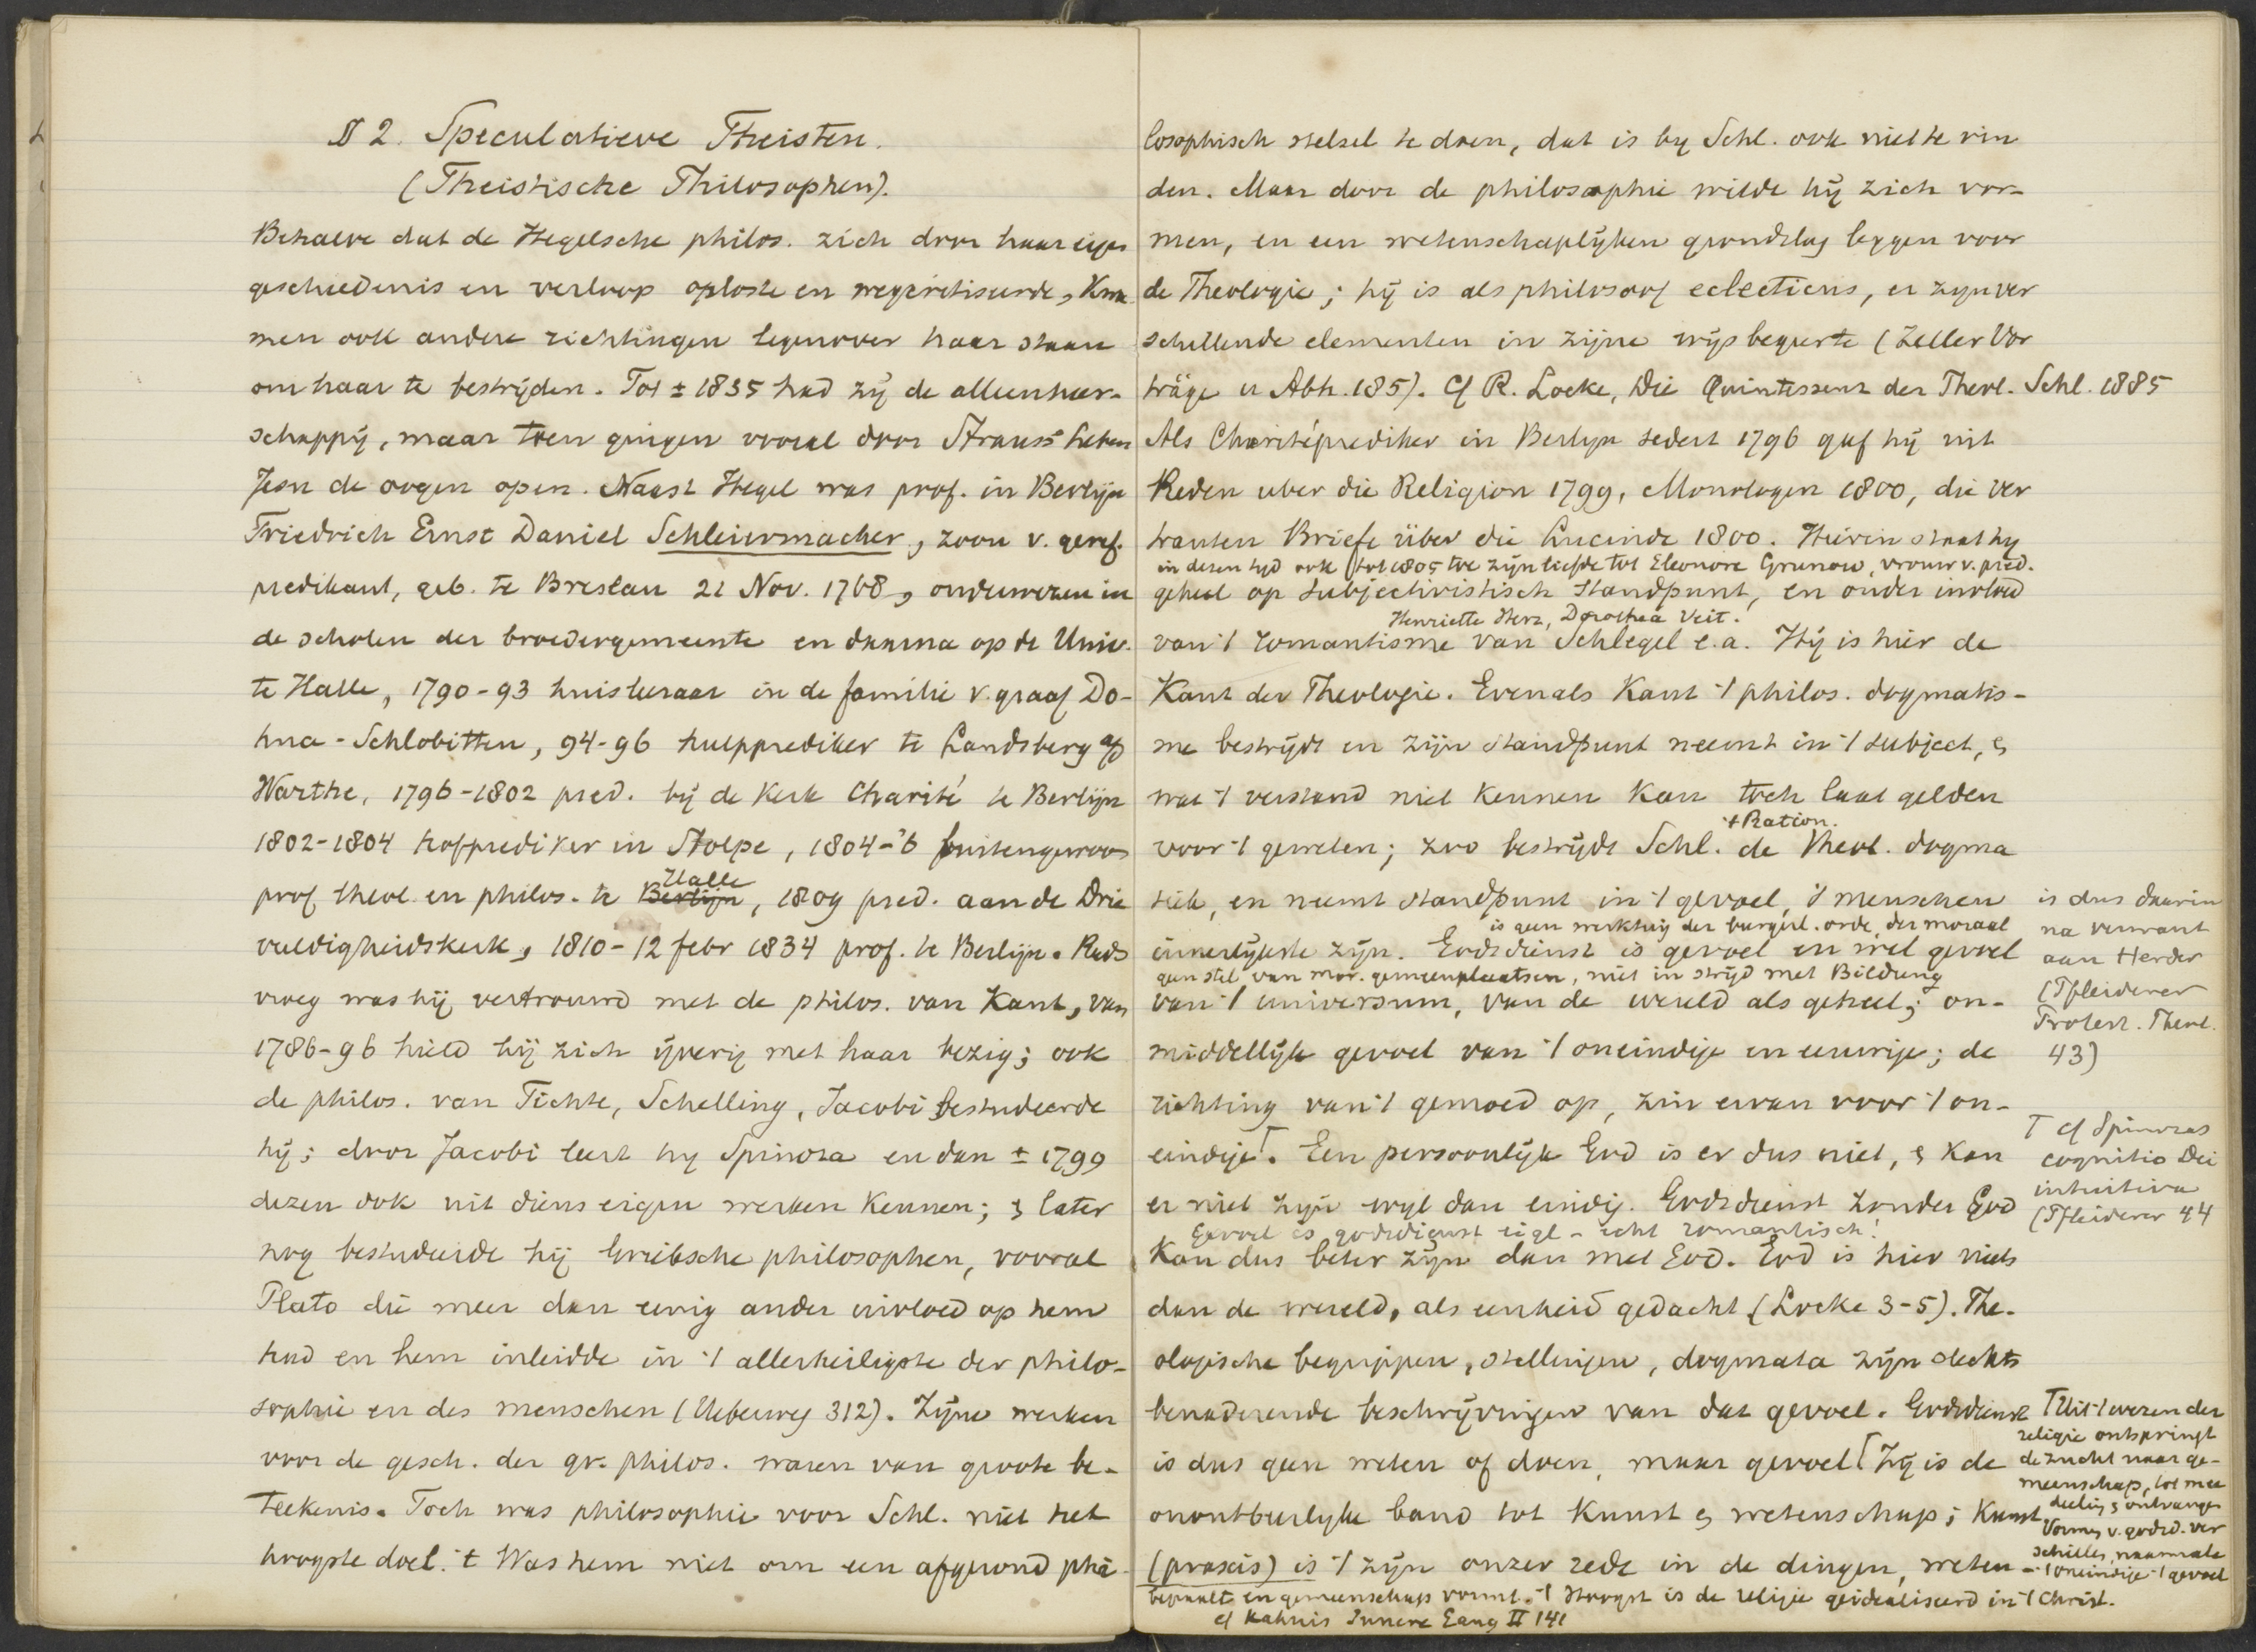 § 2. Speculatieve Theisten.
(Theistische Philosophen).
Behalve dat de Hegelsche philos. zich door haar eigen
geschiedenis en verloop oploste en wegcritiseerde, kwa
men ook andere richtingen tegenover haar staan
om haar te bestrijden. Tot ± 1835 had zij de alleenheer-
schappij, maar toen gingen vooral door Strauss' Leben
Jesu de oogen open. Naast Hegel was prof. in Berlijn
Friedrich Ernst Daniel Schleiermacher, zoon v. geref.
predikant, geb. te Breslau 21 Nov. 1768, onderwezen in
de scholen der broedergemeente en daarna op de Univ.
te Halle, 1790-93 huisleeraar in de familie v. graaf Do-
hna-Schlobitten, 94-96 hulpprediker te Landsberg a/d
Warthe, 1796-1802 pred. bij de kerk Charité te Berlijn
1802-1804 hofprediker in Stolpe, 1804-'6 buitengewoon
prof. theol. en philos. te Berlijn Halle, 1809 pred. aan de Drie
vuldigheidskerk, 1810-12 febr 1834 prof. te Berlijn. Reeds
vroeg was hij vertrouwd met de philos. van Kant, van
1786-96 hield hij zich ijverig met haar bezig; ook
de philos. van Fichte, Schelling, Jacobi bestudeerde
hij; door Jacobi leert hij Spinoza en dan ± 1799
dezen ook uit diens eigen werken kennen; & later
nog bestudeerde hij Grieksche philosophen, vooral
Plato die meer dan eenig ander invloed op hem
had en hem inleidde in 't allerheiligste der philo-
sophie en des menschen (Ueberweg 312). Zijne werken
voor de gesch. der gr. philos. waren van groote be-
teekenis. Toch was philosophie voor Schl. niet het
hoogste doel. 't Was hem niet om een afgerond phi-
losophisch stelsel te doen, dat is bij Schl. ook niet te vin
den. Maar door de philosophie wilde hij zich vor-
men, en een wetenschaplijken grondslag leggen voor
de Theologie; hij is als philosoof eclecticus, er zijn ver
schillende elementen in zijne wijsbegeerte (Zeller Vor
träge u Abh. 185). Cf R. Locke, Die Quintessenz der Theol. Schl. 1885
Als Charitéprediker in Berlijn sedert 1796 gaf hij uit
Reden uber die Religion 1799, Monologen 1800, die ver
trauten Briefe über die Lucinde 1800. Hierin staat hij
in dezen tijd ook (tot 1805 toe zijn liefde tot Eleonore Grunow, vrouw v. pred.
geheel op subjectivistisch standpunt, en onder invloed
Henriette Herz, Dorothea Veit.
van 't romantisme van Schlegel e.a. Hij is hier de
Kant der Theologie. Evenals Kant 't philos. dogmatis-
me bestrijdt en zijn standpunt neemt in 't subject, &
wat 't verstand niet kennen kan toch laat gelden
't Ration.
voor 't geweten; zoo bestrijdt Schl. de theol. dogma
tiek, en neemt standpunt in 't gevoel, 's menschen
is geen werktuig der burgerl. orde, der moraal
innerlijkste zijn. Godsdienst is gevoel en wel gevoel
geen stel van mor. gemeenplaatsen, niet in strijd met Bildung
van 't universum, van de wereld als geheel; on-
middellijk gevoel van 't oneindige en eeuwige; de
richting van 't gemoed op, zin ervan voor 't on-
eindige⌈. Een persoonlijk God is er dus niet, & kan
er niet zijn wijl dan eindig. Godsdienst zonder God
Gevoel is godsdienst eigl - echt romantisch!
kan dus beter zijn dan met God. God is hier niets
dan de wereld, als eenheid gedacht (Locke 3-5). The-
ologische begrippen, stellingen, dogmata zijn slechts
benaderende beschrijvingen van dat gevoel. Godsdienst
is dus geen weten of doen, maar gevoel⌈ Zij is de
onontbeerlijke band tot kunst & wetenschap; kunst
(praxis) is 't zijn onzer rede in de dingen, weten-
bepaalt en gemeenschap vormt. 't Hoogst is de religie geidealiseerd in 't Christ.
cf Kahnis Innere Gang II 141
is dus daarin
na verwant
aan Herder
(Pfleiderer
Protest. Theol.
43)
⌈ cf Spinozas
cognitio Dei
intuitiva
(Pfleiderer 44
⌈ Uit 't wezen der
religie ontspringt
de zucht naar ge-
meenschap, tot mee
deeling & ontvangen
Vormen v. godsd. ver
schillen, naarmate
't oneindige 't gevoel